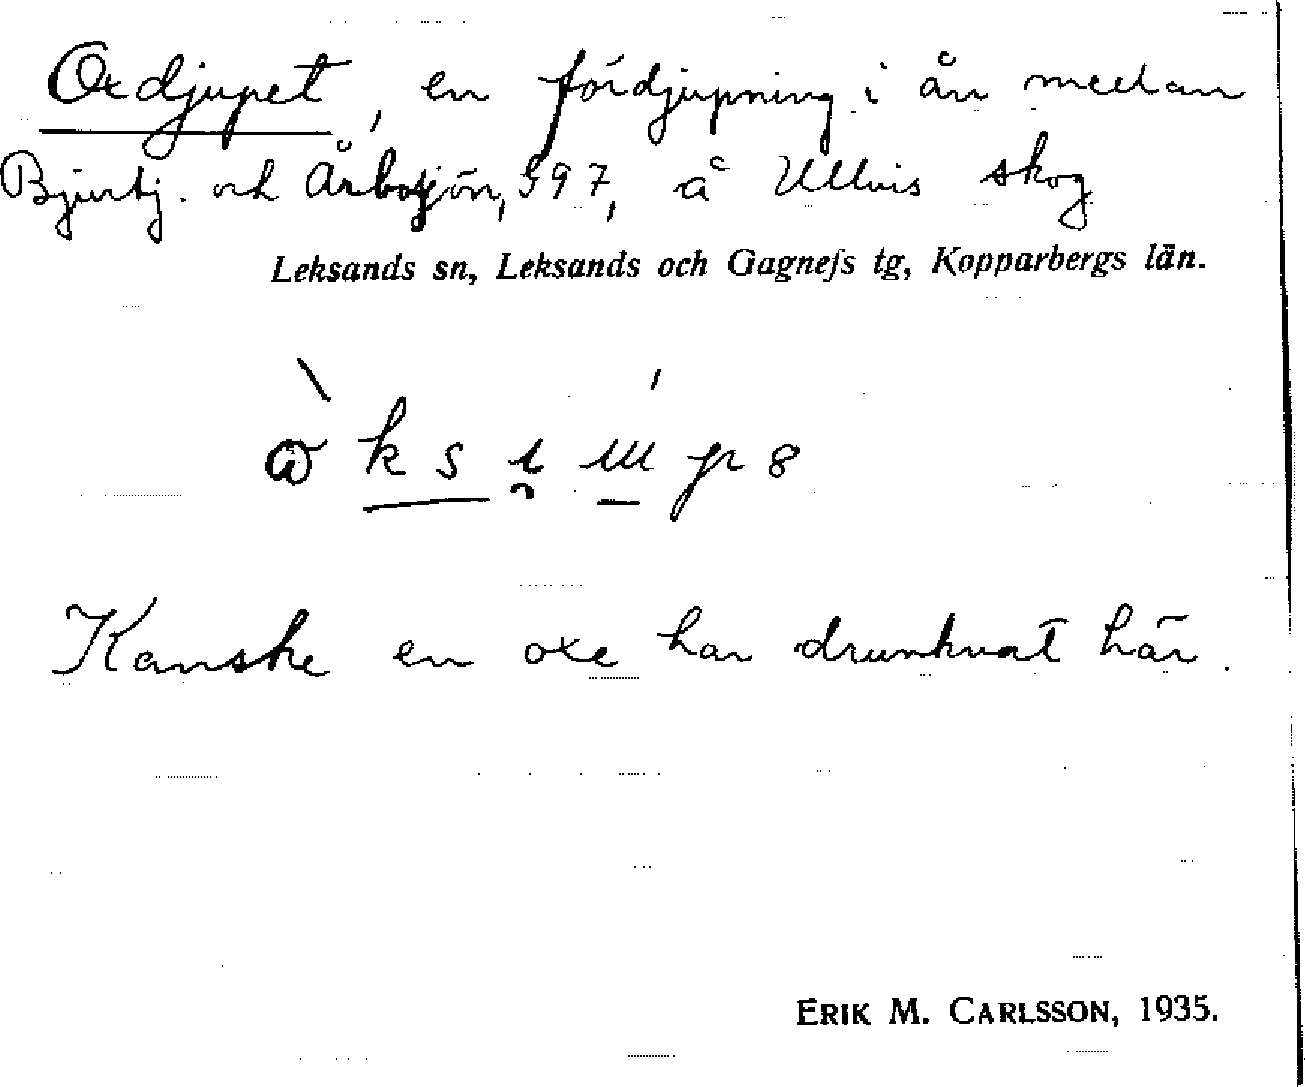 Oxdjupet, en fördjupning i ån mellan
Bjurtj. och Årbosjön, 597, å Ullvis skog
Leksands sn, Leksands och Gagnefs tg, Kopparbergs län.
Kanske en oxe har drunknat här.
ERIK M. CARLSSON, 1935.